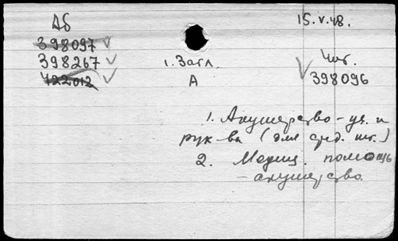 Аб 15.V.48.
398097
398267 1. Загл. Чит.
722012 А 398096
1. Акушерство - уч. и
рук-ва (для сред. шк.)
2. Медиц. помощь
- акушерство.